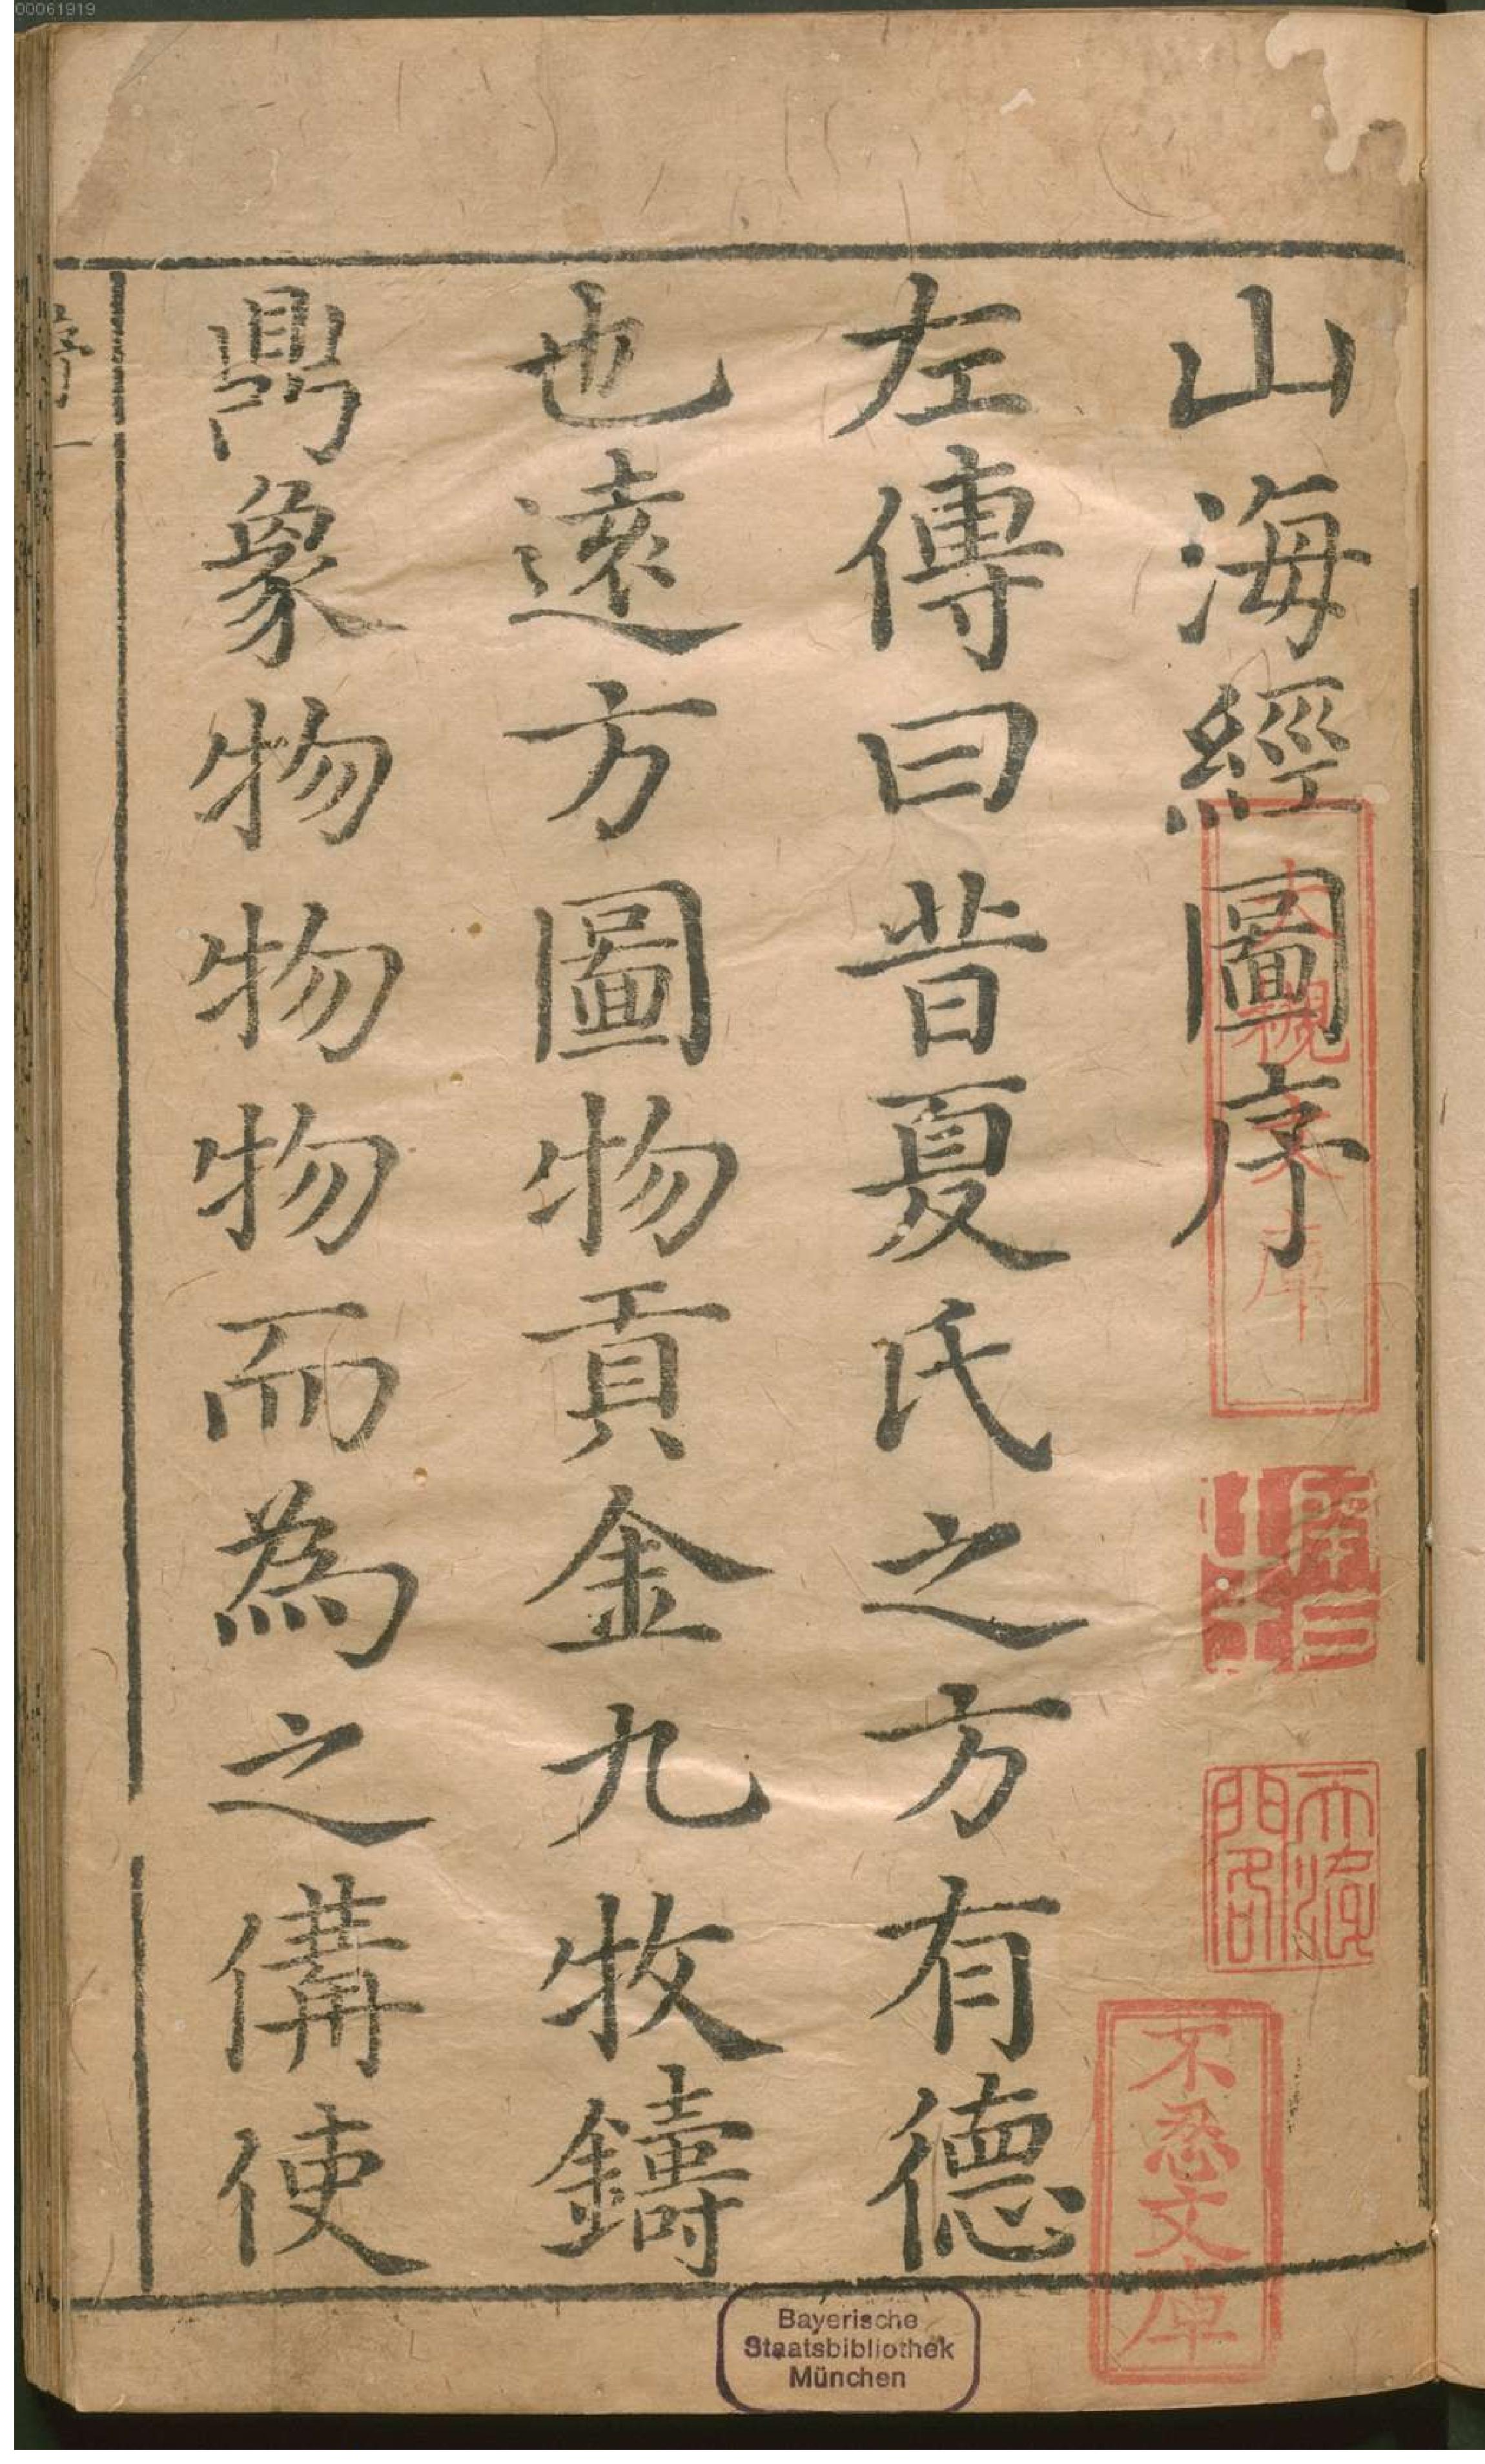 山海經圖序
左傳曰昔夏氏之方有德
也遠方圖物貢金九牧鑄
鼎象物物物而為之備使
序一
不忍文庫
Bayerische
Staatsbibliothek
München
00061919